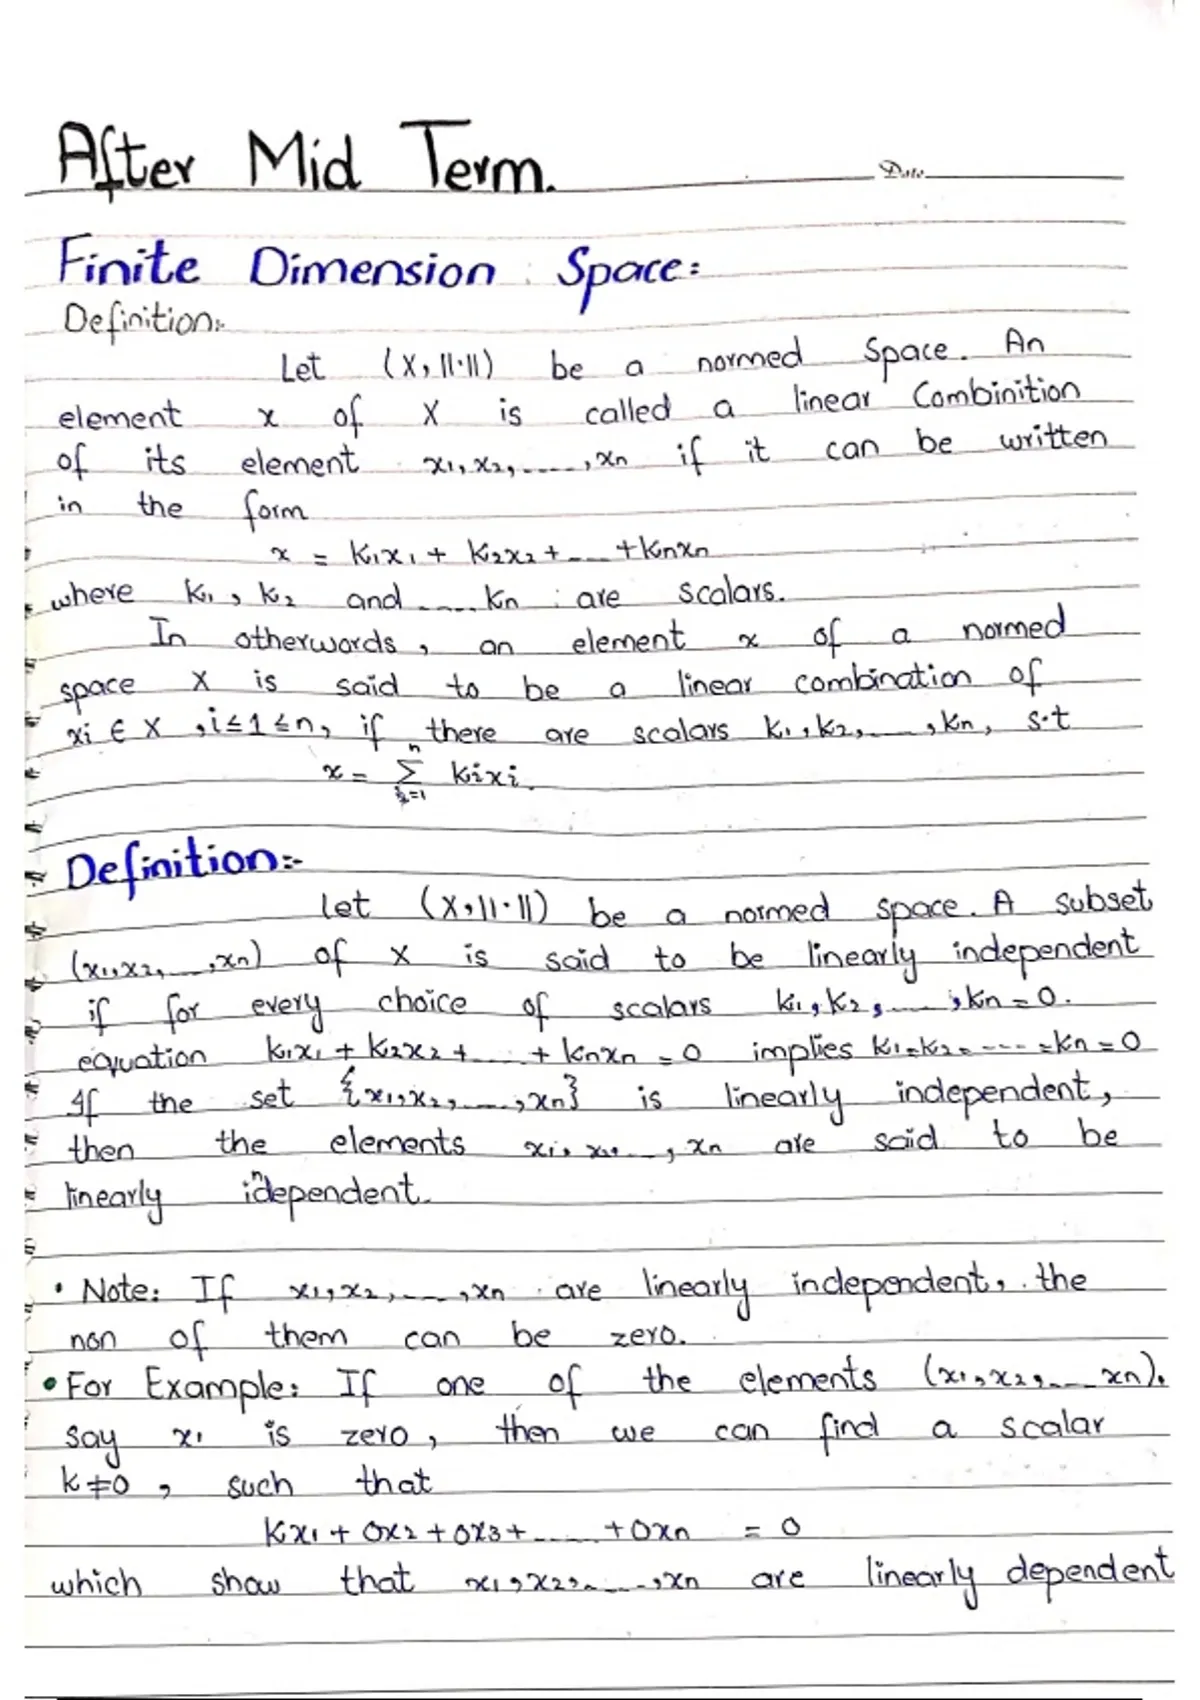 After Mid Term.
Date
Finite Dimension Space:
Definition:-
Let (X, ||·||) be a normed Space. An
element x of X is called a linear Combinition
of its element x1, x2, ......, xn if it can be written
in the form
x = K1x1 + K2x2 + .... + Knxn
where K1, K2 and ..... Kn are scalars.
In otherwords, an element x of a normed
space X is said to be a linear combination of
xi ∈ X , i≤1≤n, if there are scalars K1, K2, ....., Kn, s.t
x = n∑i=1 Kixi.
Definition:-
Let (X, ||·||) be a normed space. A subset
(x1, x2, ....., xn) of X is said to be linearly independent
if for every choice of scalars K1, K2, ....., Kn = 0.
equation K1x1 + K2x2 + .... + Knxn = 0 implies K1=K2= ---- =Kn = 0
If the set {x1, x2, ....., xn} is linearly independent,
then the elements ....., xn are said to be
linearly independent.
• Note: If x1, x2, ....., xn are linearly independent, the
non of them can be zero.
• For Example: If one of the elements (x1, x2, .... xn).
say x1 is zero, then we can find a scalar
k ≠ 0 , such that
Kx1 + 0x2 + 0x3 + ..... + 0xn = 0
which show that x1, x2, ....., xn are linearly dependent